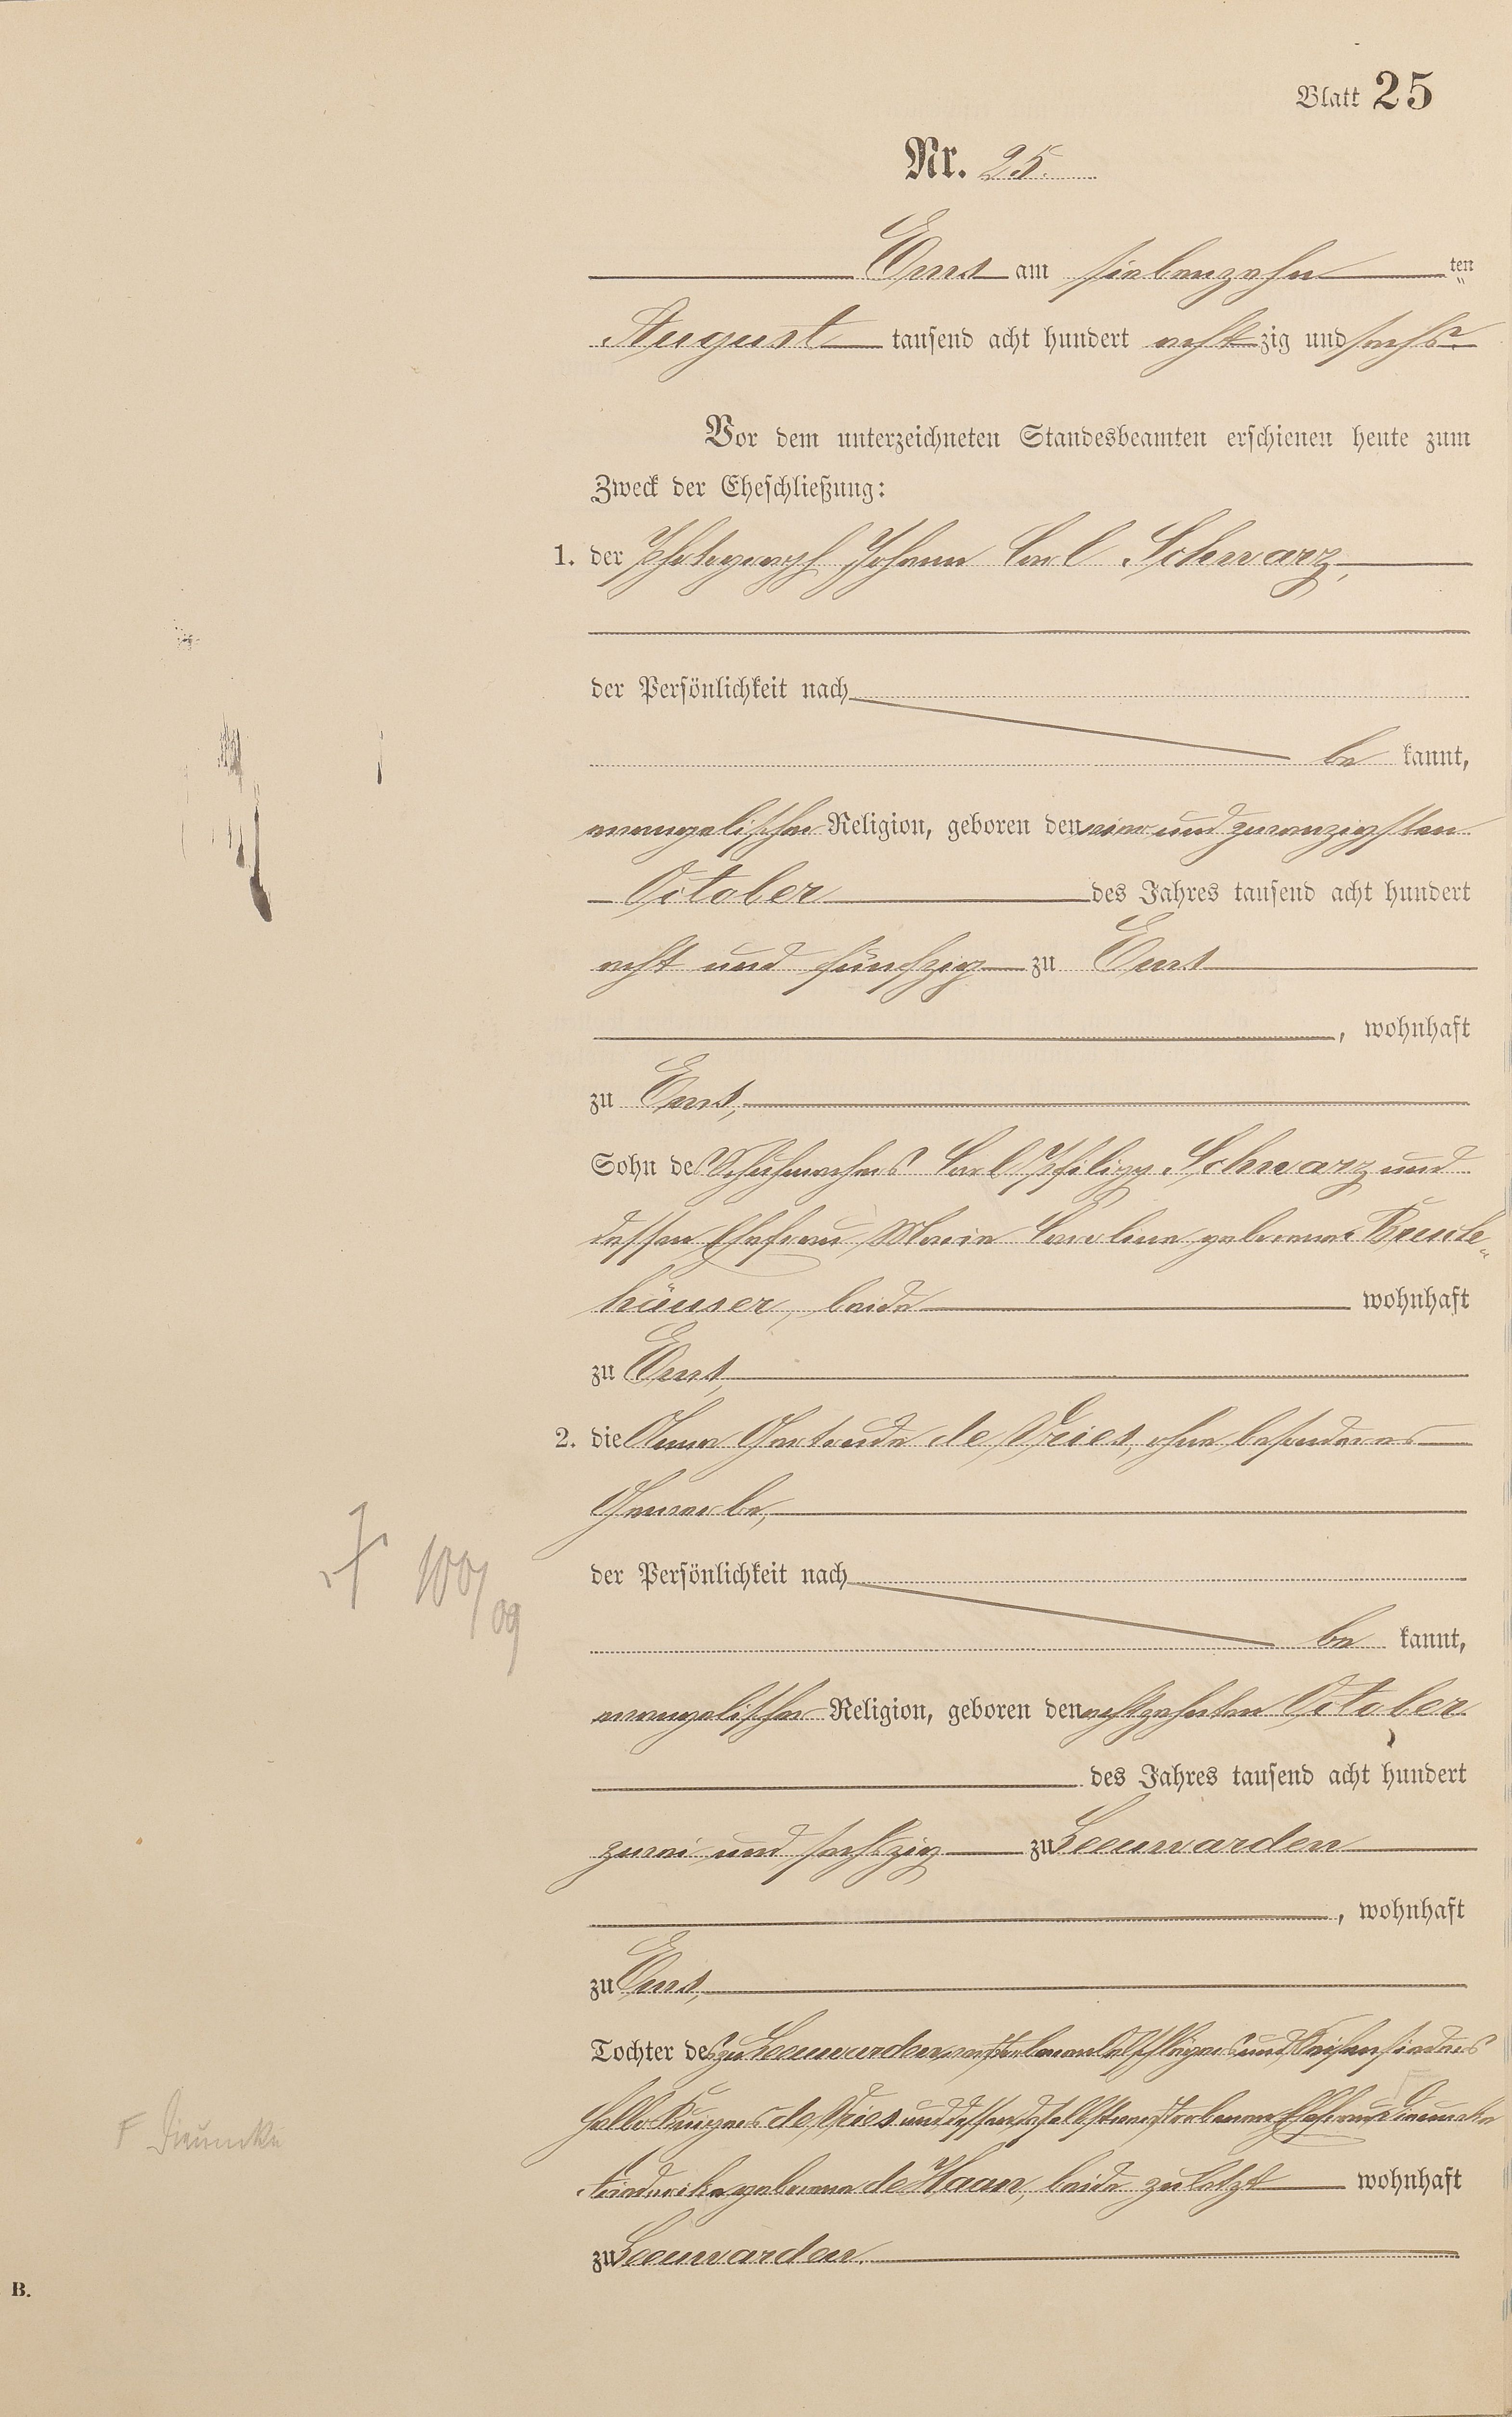 Blatt 25
Nr. 25.
Ems am siebenzehn ten
August tausend acht hundert achtzig und sechs.
Vor dem unterzeichneten Standesbeamten erschienen heute zum
Zweck der Eheschließung:
1. der Photograph Johann Carl Schwarz,
der Persönlichkeit nach
be kannt,
evangelischer Religion, geboren den vier und zwanzigsten
October des Jahres tausend acht hundert
acht und fünfzig zu Ems
, wohnhaft
zu Ems,
Sohn des Schuhmachers Carl Philipp Schwarz und
dessen Ehefrau Marie Caroline geborene
häuser, beide wohnhaft
zu Ems,
2. die Anna Gertrude de Vries, ohne besonderes
Gewerbe,
der Persönlichkeit nach
be kannt,
evangelischer Religion, geboren den achtzehnten October
des Jahres tausend acht hundert
zwei und sechszig zu Leeuwarden
, wohnhaft
zu Ems,
Tochter des zu Leeuwarden verstorbenen und
de Vries und dessen daselbst verstorbenen Ehefrau
geborene de Haan, beide zuletzt wohnhaft
zu Leeuwarden.
† 100/09
B.